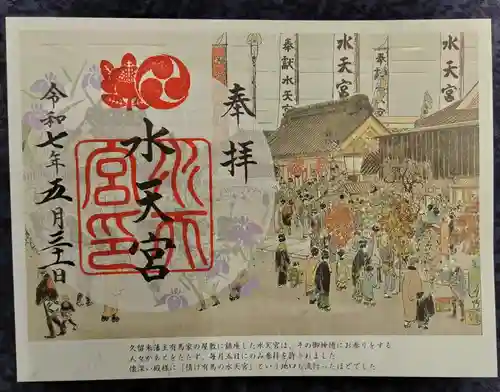 奉拝
水天宮
令和七年五月三十一日
水天宮印
奉献水天宮
水天宮
奉献
水天宮
久留米藩主有馬家の屋敷に鎮座した水天宮は、その神徳にお参りをする
人々があとをたたず、毎月五日にのみ参拝を許されました
情深い殿様に「情け有馬の水天宮」という地口も流行ったほどでした